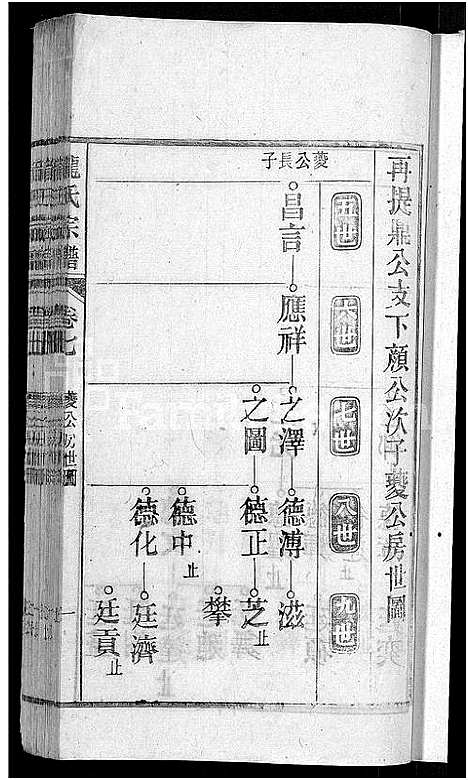 再提鼎公支下顏公次子夔公房世圖
五世
六世
七世
八世
九世
夔公長子
昌言
應祥
之澤
德溥
滋
之圖
德正
芝止
攀
德中止
德化
廷濟
廷貢止
龍氏宗譜
卷七
夔公房世圖
一